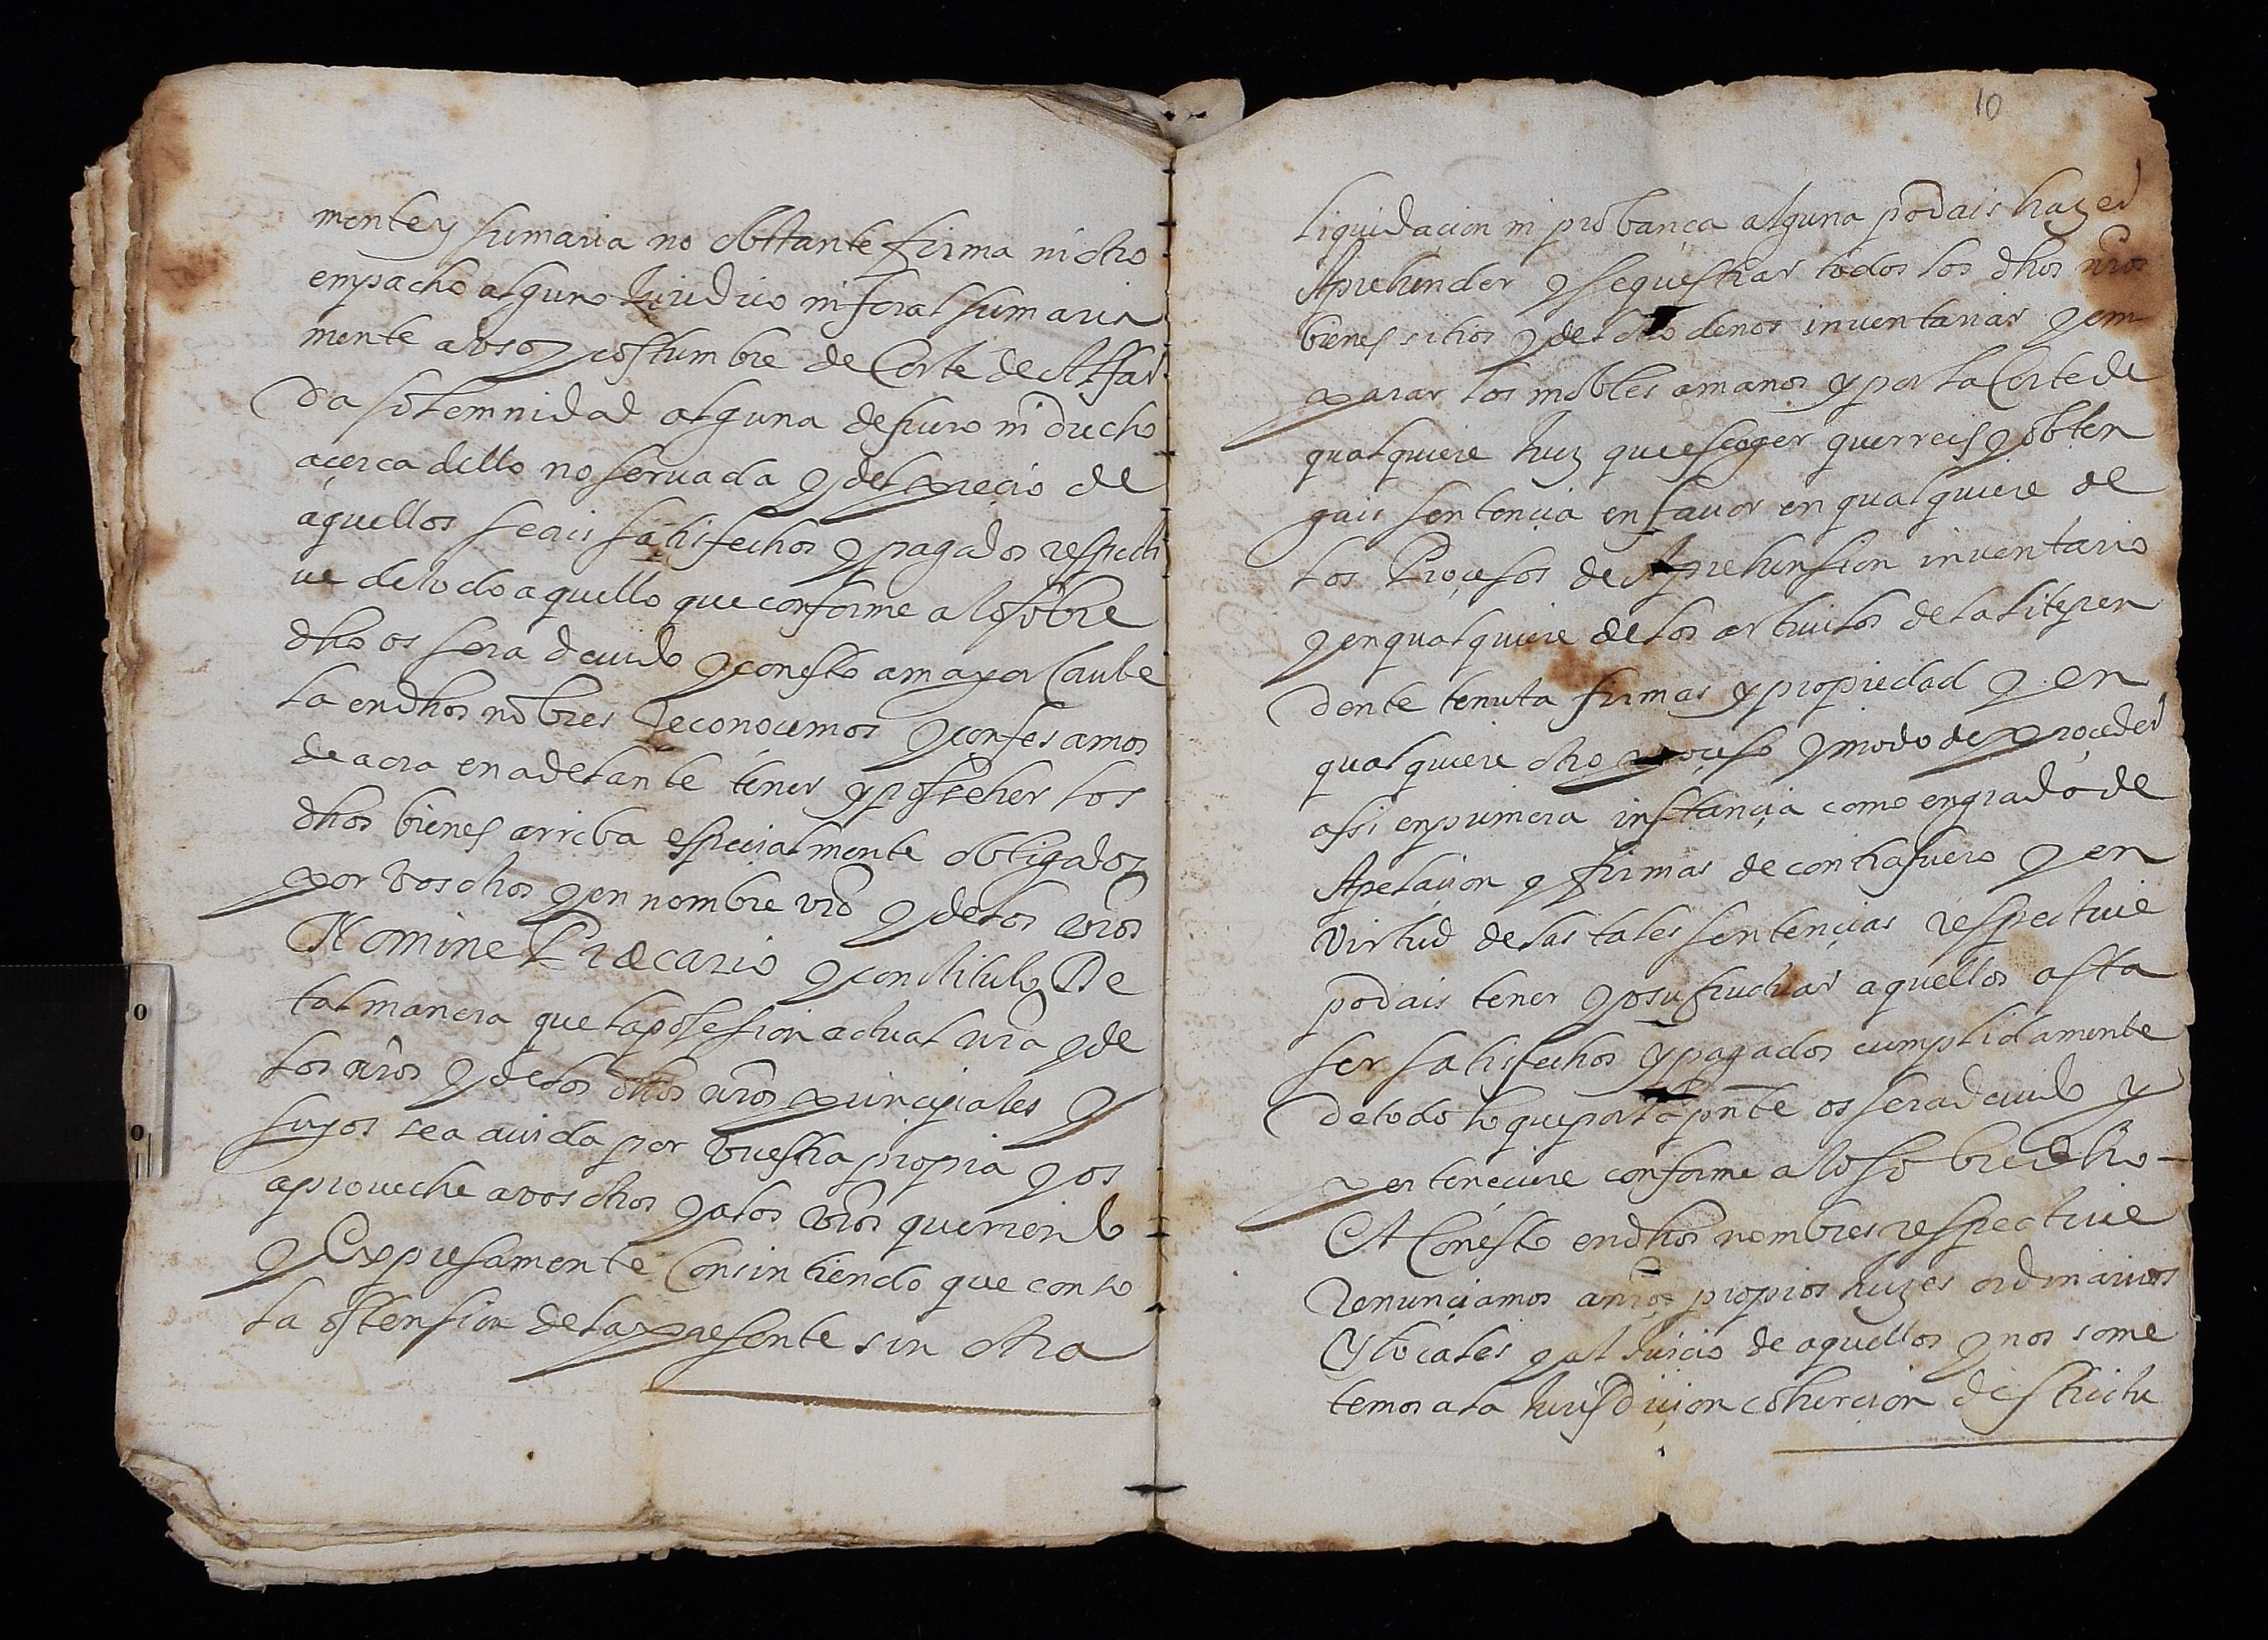 mente y sumaria no obstante firma ni otro
empacho alguno Juridico ni foral sumaria
mente a uso y costumbre de Corte de Alfar
da solemnidad alguna de fuero ni drecho
acerca dello no seruada y del precio de
aquellos seais satisfechos y pagados respecti
ue de todo aquello que conforme a lo sobre
dho os sera deuido y con esto a mayor Caute
la en dhos nōbres Reconocemos y confesamos
de aora en adelante tener y posseher los
dhos bienes arriba especialmente obligados
por vos dhos y en nombre vrō y de los vrōs
Nomine Præcario y constituto De
tal manera que la posesion actual nrā y de
los nrōs y de los dhos nrōs principales y
suyos sea auida por vuestra propia y os
aproueche a vos dhos y a los vrōs queriendo
y Expresamente Consintiendo que con so
la ostension de la presente sin otra
10
liquidaçion ni probança alguna podais hazer
Aprehender y sequestrar todos los dhos nrōs
bienes sitios y del otro denos inuentariar y em
parar los mobles a manos y por la Corte de
qualquiere Juez que escoger querreis y obten
gais sentencia en fauor en qualquiere de
los Proçesos de Aprehension inuentario
y en qualquiere de los articulos de la litepen
dente tenuta firmas y propiedad y en
qualquiere otro proçeso y modo de proçeder
assi en primera instançia como en grado de
Apelaçion y firmas de contrafuero y en
virtud de las tales sentençias respectiue
podais tener y vsufructuar aquellos asta
ser satisfechos y pagados cumplidamente
de todo lo que por la pnte os sera deuido y
pertenecere conforme a lo sobredho -
A Con esto en dhos nombres respectiue
Renunçiamos a nrōs propios Juezes ordinarios
y locales y al Juicio de aquellos y nos some
temos a la Jurisdiçion cohercion districtu